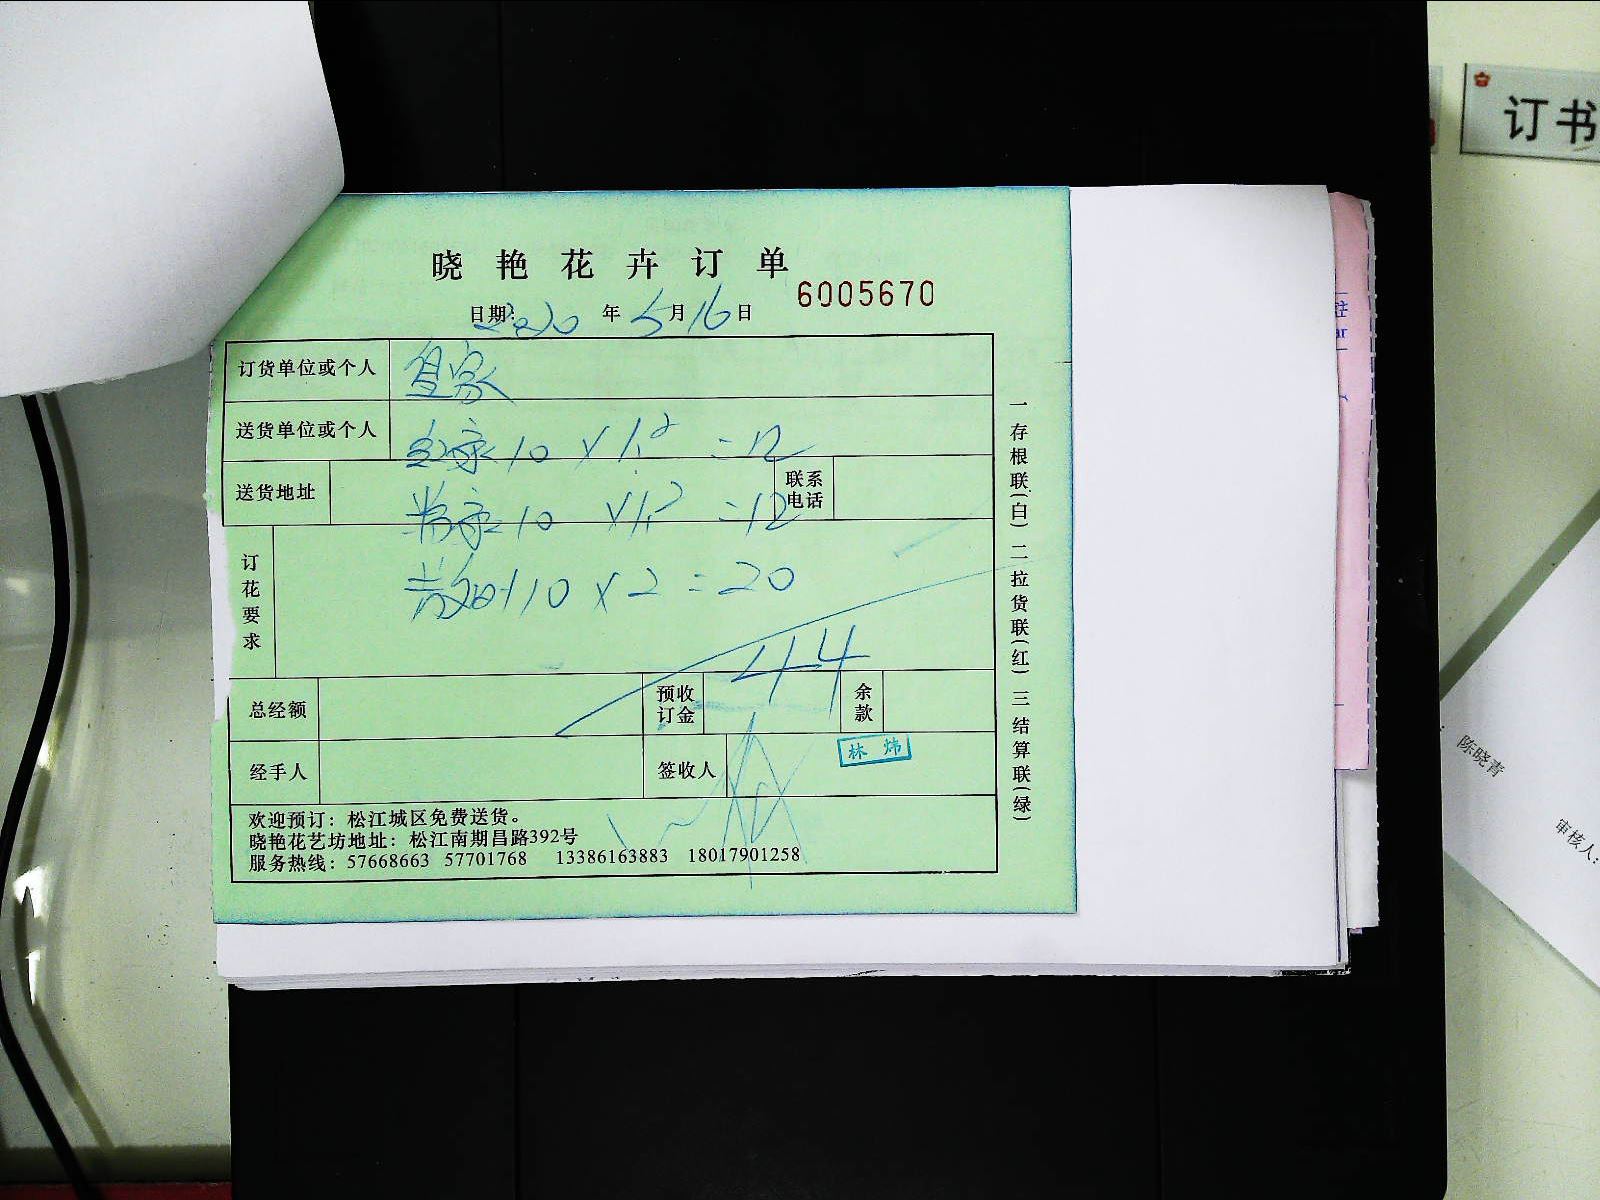 订书
晓艳花卉订单
6005670
日期: 2020 年 5 月 16 日
订货单位或个人 宜家
送货单位或个人
红康 10 × 1.2 = 12
送货地址
联系电话
黄康 10 × 1.2 = 12
订花要求
10 × 2 = 20
44
总经额
预收订金
余款
经手人
签收人
林炜
欢迎预订：松江城区免费送货。
晓艳花艺坊地址：松江南期昌路392号
服务热线：57668663 57701768 13386163883 18017901258
一存根联(白) 二拉货联(红) 三结算联(绿)
陈晓青
审核人: